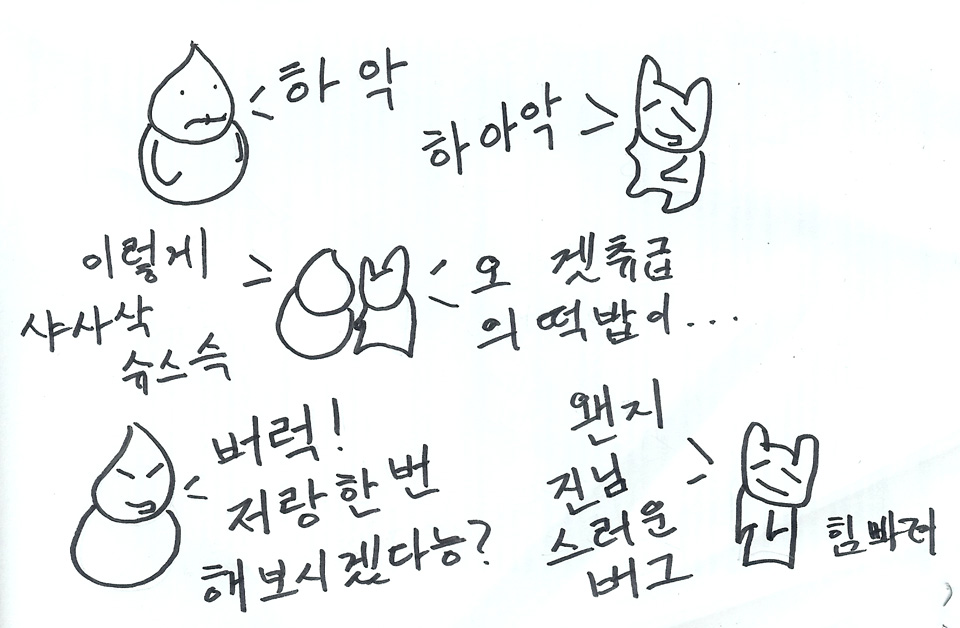 하 악
하 아악
이렇게
샤사삭
슈스슥
오 겟츄급
의 떡밥이...
버럭!
저랑 한 번
해보시겠다능?
왠지
진님
스러운
버그
힘빠려